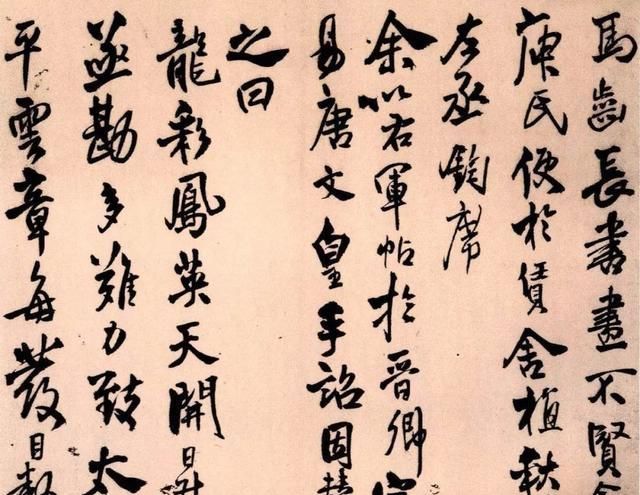 馬齒長書畫不賢
庾氏便於賃舍植
左丞鈞席
余以右軍帖於晉卿
易唐文皇手詔因
之曰
龍彩鳳英天開日昇
亟勘多難力致太
平雲章每發目